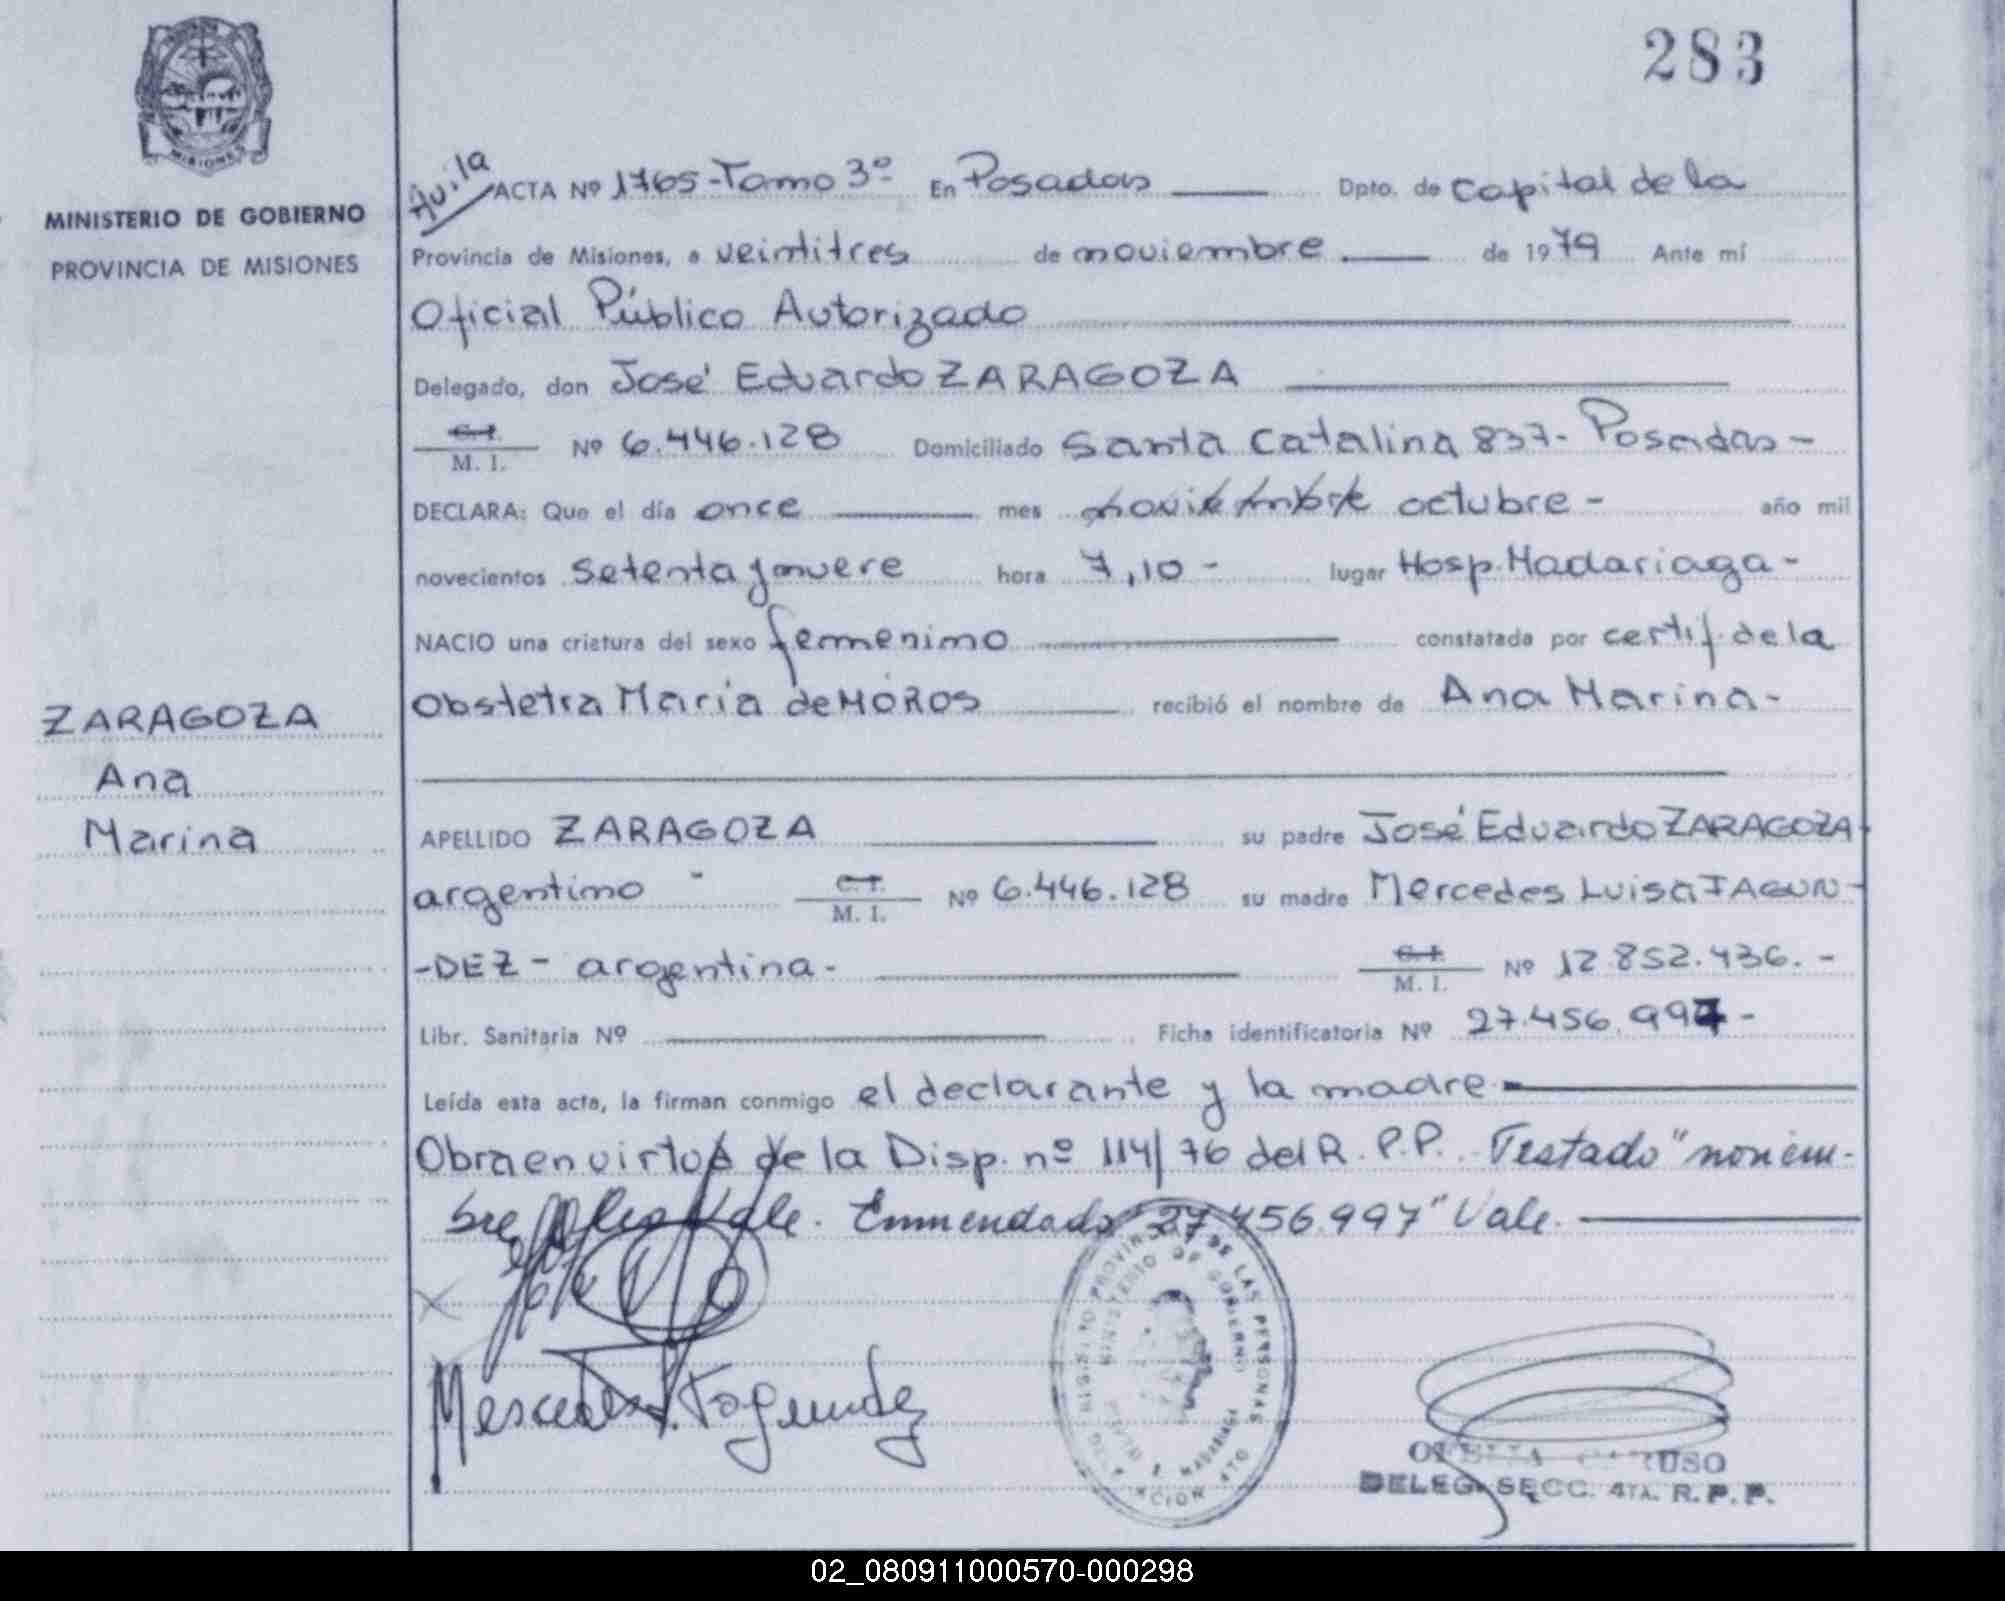 283
MISIONES
MINISTERIO DE GOBIERNO
PROVINCIA DE MISIONES
ZARAGOZA
Ana
Marina
Avila
ACTA Nº 1765-Tomo 3º En Posadas Dpto. de Capital de la
Provincia de Misiones, a veintitres de noviembre de 1979 Ante mí
Oficial Público Autorizado
Delegado, don José Eduardo ZARAGOZA
C.I.
M. I. Nº 6.446.128 Domiciliado Santa Catalina 837- Posadas -
DECLARA: Que el día once mes noviembre octubre - año mil
novecientos setenta y nueve hora 7,10 - lugar Hosp. Madariaga -
NACIO una criatura del sexo femenino constatada por certif. de la
Obstetra María de MOROS recibió el nombre de Ana Marina -
APELLIDO ZARAGOZA su padre José Eduardo ZARAGOZA -
argentino - C.I. M. I. Nº 6.446.128 su madre Mercedes Luisa FAGUN-
-DEZ - argentina - C.I. M. I. Nº 12.852.436. -
Libr. Sanitaria Nº Ficha identificatoria Nº 27.456.997 -
Leída esta acta, la firman conmigo el declarante y la madre
Obra en virtud de la Disp. nº 114/76 del R. P.P. Testado "noviem-
bre" Vale. Enmendado 27.456.997" Vale.
Mercedes L. Fagundez
PROVINCIAL DE LAS PERSONAS
MINISTERIO DE GOBIERNO
CARUSO
DELEG. SECC. 4TA. R. P. P.
02_080911000570-000298